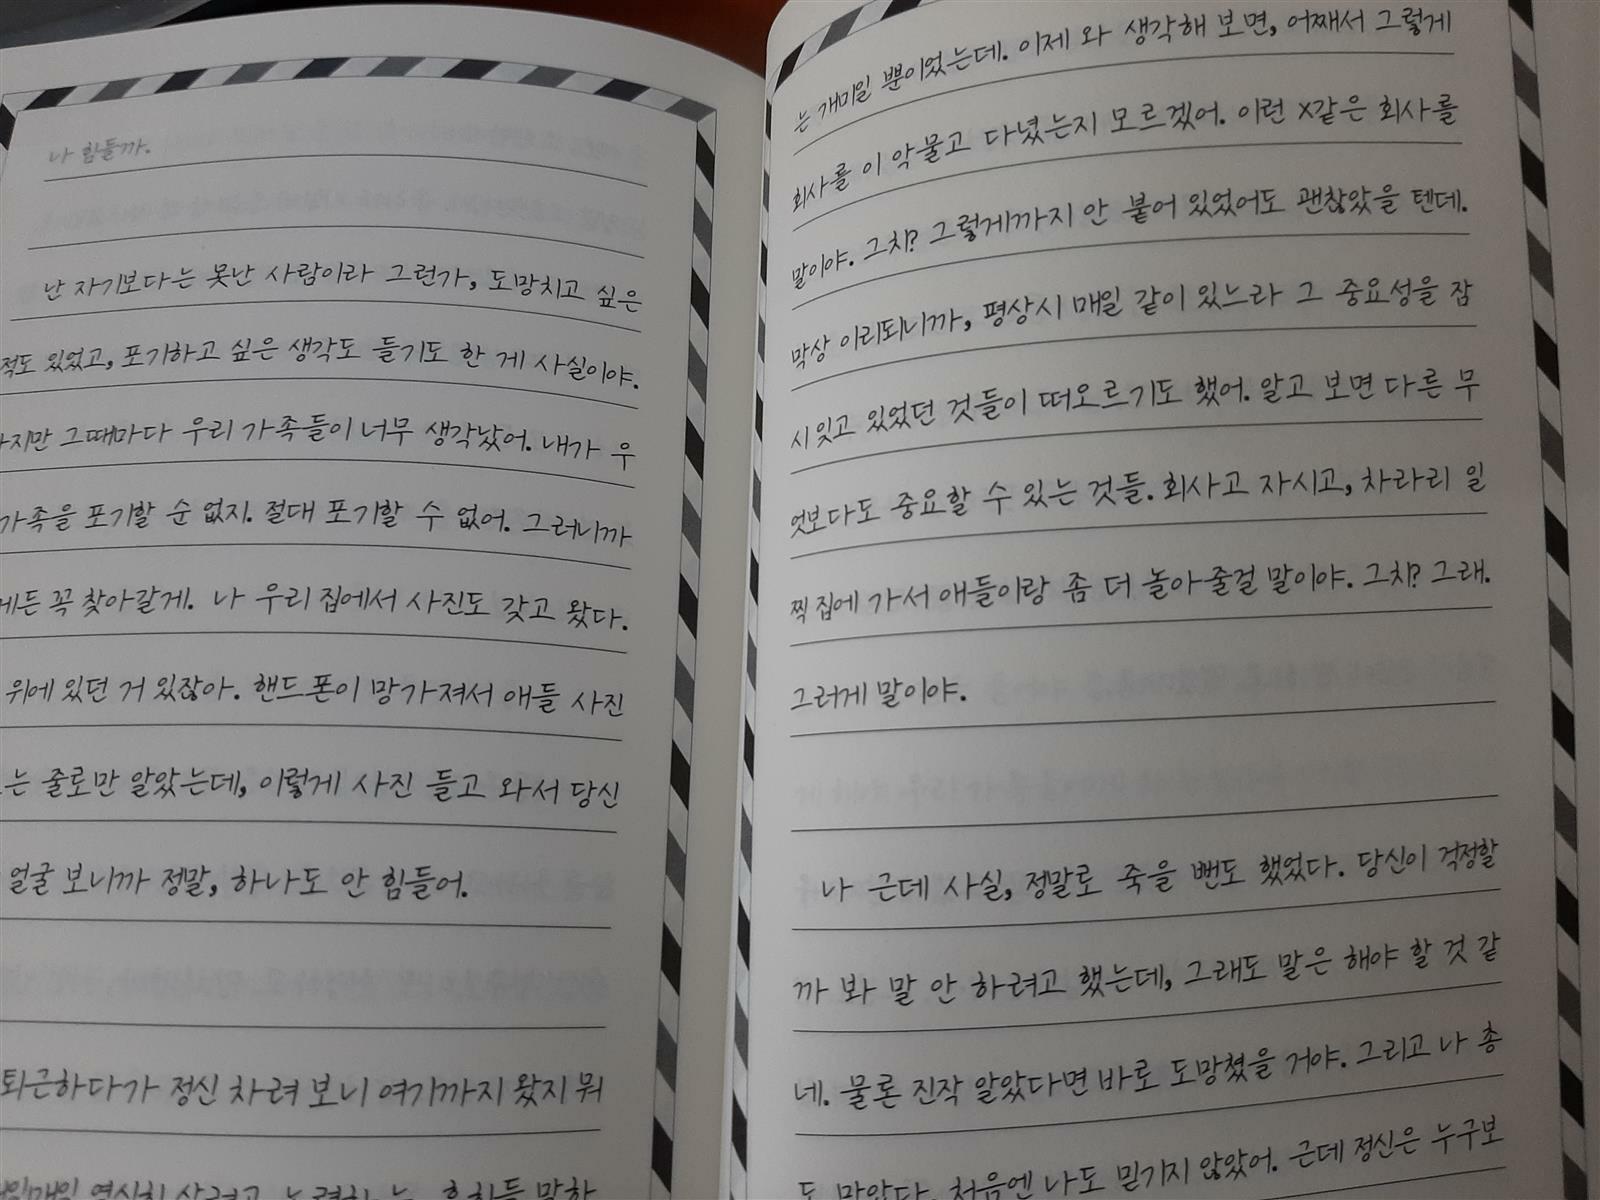 나 힘들까.
난 자기보다는 못난 사람이라 그런가, 도망치고 싶은
적도 있었고, 포기하고 싶은 생각도 들기도 한 게 사실이야.
지만 그때마다 우리 가족들이 너무 생각났어. 내가 우
가족을 포기할 순 없지. 절대 포기할 수 없어. 그러니까
게든 꼭 찾아갈게. 나 우리 집에서 사진도 갖고 왔다.
위에 있던 거 있잖아. 핸드폰이 망가져서 애들 사진
는 줄로만 알았는데, 이렇게 사진 들고 와서 당신
얼굴 보니까 정말, 하나도 안 힘들어.
퇴근하다가 정신 차려 보니 여기까지 왔지 뭐
열심히 살려고 노력하는, 흔히들 말하
는 개미일 뿐이었는데. 이제 와 생각해 보면, 어째서 그렇게
회사를 이 악물고 다녔는지 모르겠어. 이런 X같은 회사를
말이야. 그치? 그렇게까지 안 붙어 있었어도 괜찮았을 텐데.
막상 이리되니까, 평상시 매일 같이 있느라 그 중요성을 잠
시 잊고 있었던 것들이 떠오르기도 했어. 알고 보면 다른 무
엇보다도 중요할 수 있는 것들. 회사고 자시고, 차라리 일
찍 집에 가서 애들이랑 좀 더 놀아줄걸 말이야. 그치? 그래.
그러게 말이야.
나 근데 사실, 정말로 죽을 뻔도 했었다. 당신이 걱정할
까 봐 말 안 하려고 했는데, 그래도 말은 해야 할 것 같
네. 물론 진작 알았다면 바로 도망쳤을 거야. 그리고 나 총
도 맞았다. 처음엔 나도 믿기지 않았어. 근데 정신은 누구보